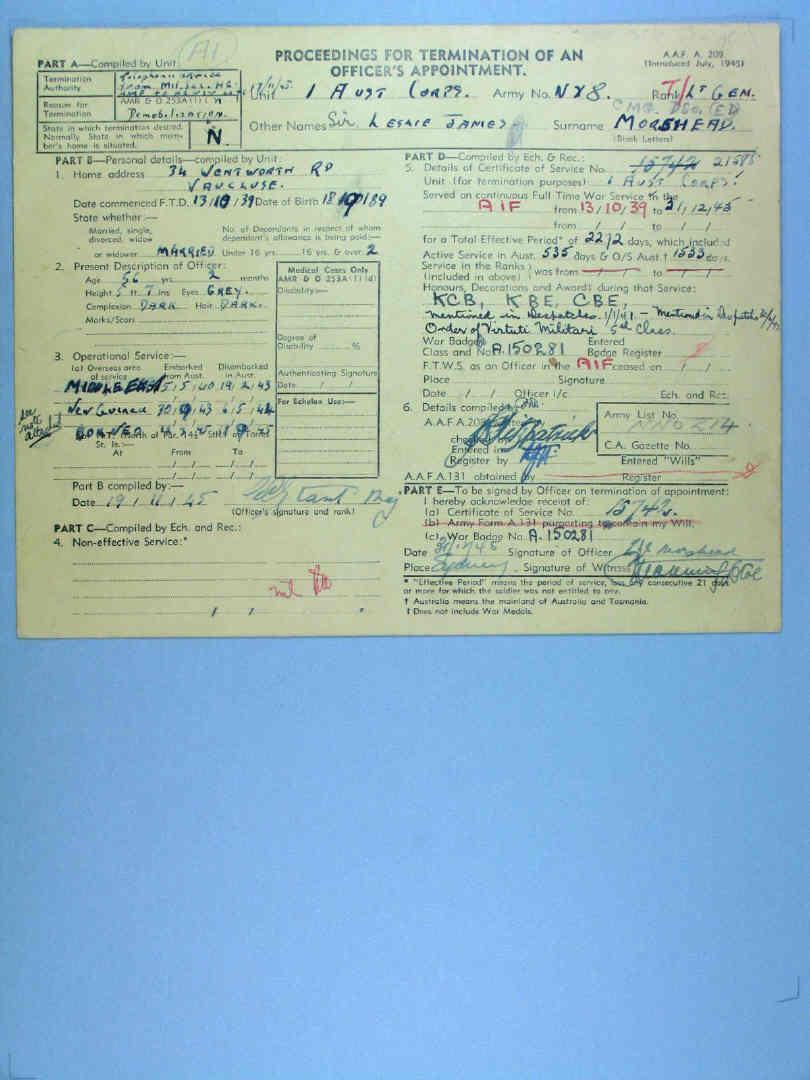 A1
PART A—Compiled by Unit:
PROCEEDINGS FOR TERMINATION OF AN
OFFICER'S APPOINTMENT.
A.A.F. A. 209
(Introduced July, 1945)
Termination
Authority
Telephone advice
from Mil. Sec. HQ.
17/11/45.
Reason for
Termination
AMR & O 253A(1)( )
Demobilization.
State in which termination desired.
Normally State in which mem-
ber's home is situated.
N.
Unit 1 Aust Corps. Army No. NX8. Rank T/Lt Gen.
CMG. DSO. (ED)
Other Names Sir Leslie James Surname MORSHEAD.
(Block Letters)
PART B—Personal details—compiled by Unit:
1. Home address 34 Wentworth Rd
Vaucluse.
Date commenced F.T.D. 13/10/39 Date of Birth 18/9/89
State whether:—
Married, single,
divorced, widow
or widower MARRIED
No. of Dependants in respect of whom
dependant's allowance is being paid:—
Under 16 yrs. 16 yrs. & over 2
2. Present Description of Officer:
Age 56 yrs. 2 months
Height 5 ft 7 ins Eyes GREY.
Complexion DARK Hair DARK.
Marks/Scars
Medical Cases Only
AMR & O 253A(1)(d)
Disability:—
Degree of
Disability %
Authenticating Signature
Date / /
For Echelon Use:—
3. Operational Service:—
(a) Overseas area
of service
Embarked
from Aust.
Disembarked
in Aust.
MIDDLE EAST 5/5/40 19/2/43
New Guinea 30/9/43 6/5/44
BORNEO
see
note
attached
St. Is.:—
At From To
Part B compiled by:—
Date 19/11/45
(Officer's signature and rank)
PART C—Compiled by Ech. and Rec.:
4. Non-effective Service:*
nil
PART D—Compiled by Ech. & Rec.:
5. Details of Certificate of Service No. 15742 21595
Unit (for termination purposes) 1 Aust Corps.
Served on continuous Full Time War Service in the
AIF from 13/10/39 to 31/12/45
from / / to / /
for a Total Effective Period* of 2272 days, which included
Active Service in Aust. 535 days & O/S Aust.† 1533 days.
Service in the Ranks
(included in above) was from to
Honours, Decorations and Awards during that Service:
KCB, KBE, CBE,
mentioned in Despatches 1/1/41. — Mentioned in Despatches
Order of Virtuti Militari 5th Class.
War Badge
Class and No. A.150281
Entered
Badge Register
F.T.W.S. as an Officer in the AIF ceased on / /
Place Signature
Date / / Officer i/c Ech. and Rec.
6. Details compiled
A.A.F.A.209
checked
Entered in
Register by
Army List No. NNO 214
C.A. Gazette No.
A.A.F.A.131 obtained by
Entered "Wills"
Register
PART E—To be signed by Officer on termination of appointment:
I hereby acknowledge receipt of:
(a) Certificate of Service No. 15742.
(b) Army Form A.131 purporting to contain my Will.
(c) War Badge No. A.150281
Date Signature of Officer Morshead
Place Sydney. Signature of Witness
* "Effective Period" means the period of service, less any consecutive 21 days
or more for which the soldier was not entitled to pay.
† Australia means the mainland of Australia and Tasmania.
‡ Does not include War Medals.